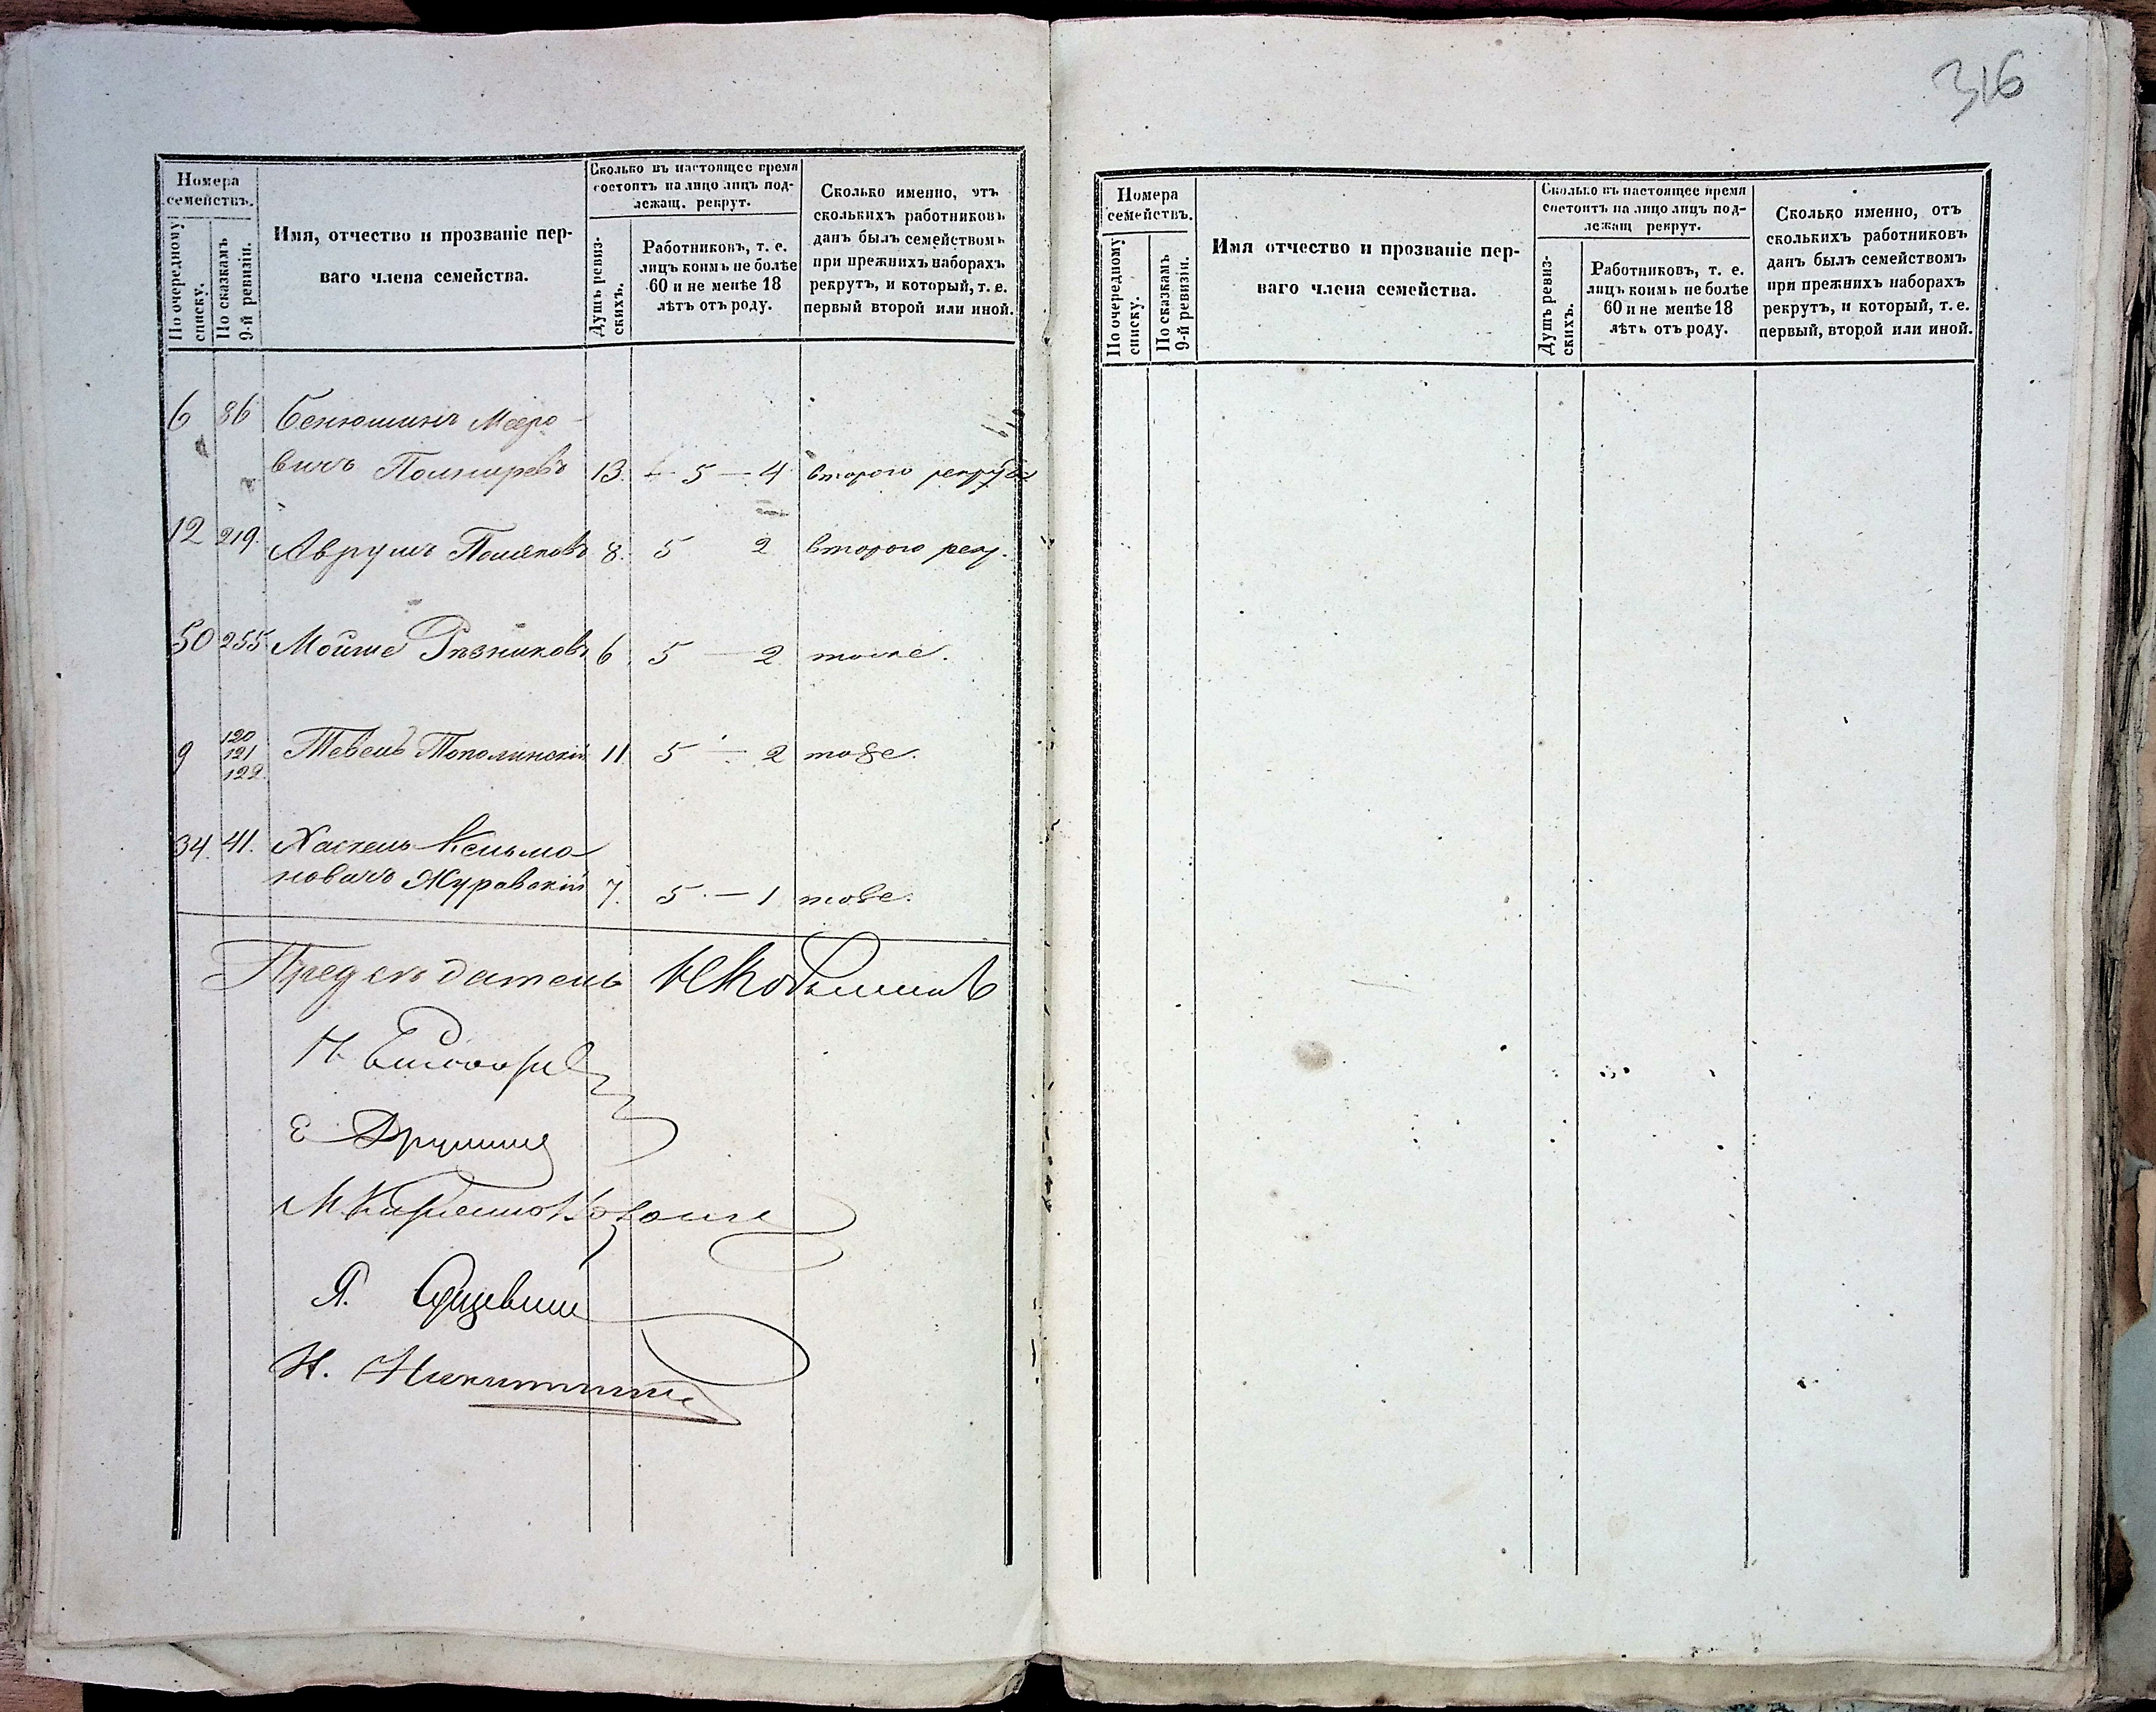 316
Номера
семействъ.
По очередному
списку.
По сказкамъ
9-й ревизіи.
Имя, отчество и прозваніе пер-
ваго члена семейства.
Сколько въ настоящее время
состоитъ на лицо лицъ под-
лежащ. рекрут.
Душъ ревиз-
скихъ.
Работниковъ, т. е.
лицъ коимъ не болѣе
60 и не менѣе 18
лѣтъ отъ роду.
Сколько именно, отъ
сколькихъ работниковъ
данъ былъ семействомъ
при прежнихъ наборахъ
рекрутъ, и который, т. е.
первый второй или иной.
6 86 Бенюминъ Мееро-
вичъ 13. 5 — 4 второго рекрута
12 219. Аврумъ Поляковъ 8. 5 2 второго рекр.
50 255 Мойше Рѣзниковъ 6 5 — 2 тоже.
9 120 121 122. Тевель Тополинскій 11 5 — 2 тоже.
34. 41. Хаскель Кельма-
новичъ Журавскій 7. 5 — 1 тоже.
Предсѣдатель
Е
М.
Я.
Н. Никитинъ
Номера
семействъ.
По очередному
списку.
По сказкамъ
9-й ревизіи.
Имя отчество и прозваніе пер-
ваго члена семейства.
Сколько въ настоящее время
состоитъ на лицо лицъ под-
лежащ рекрут.
Душъ ревиз-
скихъ.
Работниковъ, т. е.
лицъ коимъ не болѣе
60 и не менѣе 18
лѣтъ отъ роду.
Сколько именно, отъ
сколькихъ работниковъ
данъ былъ семействомъ
при прежнихъ наборахъ
рекрутъ, и который, т. е.
первый, второй или иной.